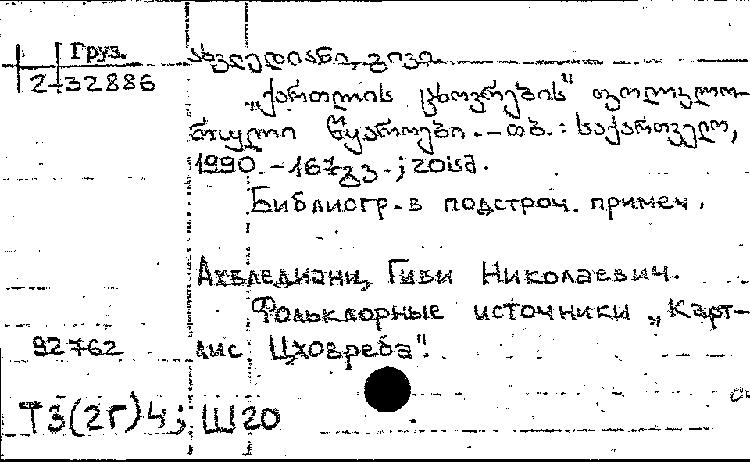 Груз.
ახვლედიანი, გივი.
2-32886
„ქართლის ცხოვრების" ფოლკლო-
რული წყაროები. - თბ. : საქართველო,
1990. - 167გვ. ; 20სმ.
Библиогр. в подстроч. примеч.
Ахвледиани, Гиви Николаевич.
Фольклорные источники „Карт-
92762 лис Цховреба".
Т3(2Г)4; Ш20